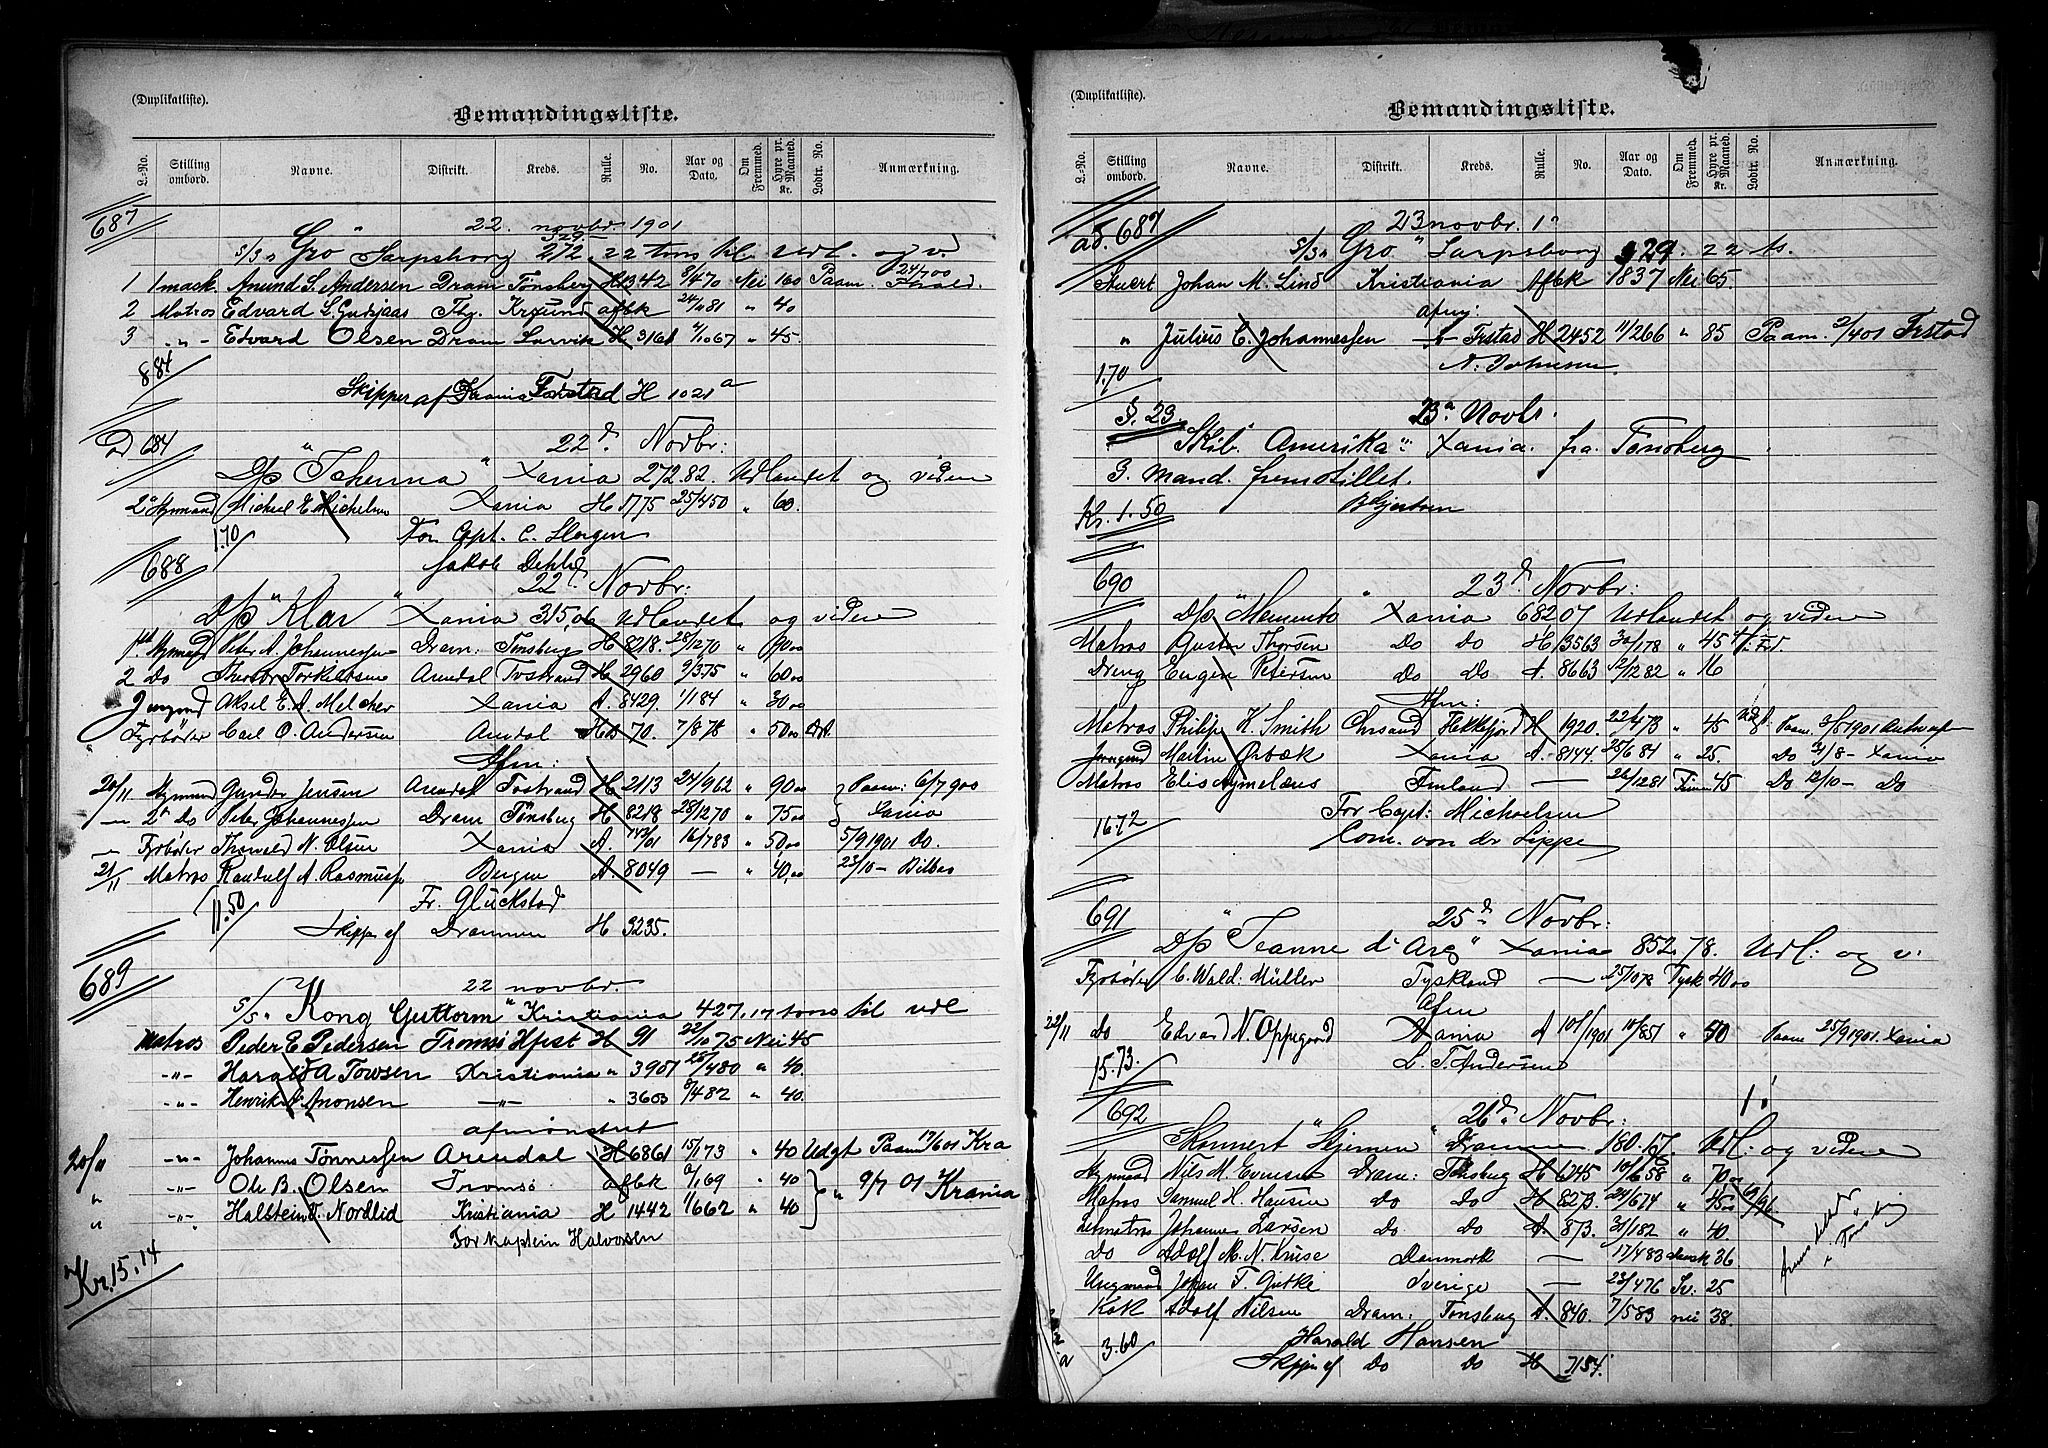 (Duplikatliste).
Bemandingsliste.
L.-No. Stilling ombord. Navne. Distrikt. Kreds. Rulle. No. Aar og Dato. Om Fremmed. Hyre pr. Maaned. Kr. Lodtr. No. Anmærkning.
687 22 novbr. 1901
329
S/S "Gro" Sarpsborg 272.22 tons til Udl. og v.
1 1 mask. Anund S. Andersen Dram Tønsberg 342 Nei 160 Paam. 24/7 00
2 Matros Edvard L. Gudsjaas afbk 24/ 81 " 40
3 -"- Edvard Olsen Dram Larvik H 3161 4/10 67 " 45
8.84
Skipper af Krania Frstad H 1021 a
ad 684 22d Novbr:
D/S "Johenna" Xania 272.82. Udlandet og videre
2d Styrmand Michael E. Michelsen Xania H 1775 25/4 50 " 60
1.70 For Cpt. C. Slorgen
Jakob Dehli
688 22d Novbr:
D/S "Klar" Xania 315,06 Udlandet og videre
1st Styrmand Peter A. Johannessen Dram: Tønsberg H 8218. 28/12 70 " 90.00
2 Do Torkildsen Arendal Tvstrand H 2960 9/3 75 " 60.00
Jungmd Aksel E. A. Melcher Xania A. 8429. 1/1 84 " 30.00
Fyrbøder Carl O. Andersen Arendal 70. 7/8 78 " 50.00
Afm:
20/11 Styrmand Gunder Jensen Arendal Tvstrand H 2113 24/9 62 " 90.00 Paam: 6/7 900
— 2d Do Peter Johannessen Dram Tønsberg H 8218 28/12 70 " 75.00 Xania
— Fyrbøder Thorvald N. Olsen Xania A. 16/7 83 " 50.00 5/9 1901 Do.
21/11 Matros Randulf A. Rasmuss Bergen A. 8049 — " 40.00 23/10 — Bilbao
11.50 Fr. Gluckstad
Skipper af Drammen H 3235.
689 22 novbr.
S/S "Kong Guttorm" Kristiania 427,17 tons til udl
Matros Peder E. Pedersen Tromsø Hfest H 91 22/10 75 Nei 45
-"- Harald A Towsen Kristiania " 3907 /4 80 " 40.
-"- Henrik A. Amonsen —"— " 3603 8/4 82 " 40.
afmønstret
20/11 -"- Johannes Tønnessen Arendal H 6861 15/1 73 " 40 Udgt Paam 17/6 01 Kra
" -"- Ole B. Olsen Tromsø afbk /1 69 " 40 " 9/7 01 Krania
" -"- Halstein Nordlid Kristiania H 1442 1/6 62 " 40
For kaptein Halvorsen
Kr. 15.14
(Duplikatliste).
Bemandingsliste.
L.-No. Stilling ombord. Navne. Distrikt. Kreds. Rulle. No. Aar og Dato. Om Fremmed. Hyre pr. Maaned. Kr. Lodtr. No. Anmærkning.
ad. 687 23 novbr. 1"
S/S "Gro" Sarpsborg 329. 22 ts.
Stuert Johan M. Lind Kristiania Afbk 1837 Nei 65
afm:
" Julius C. Johannessen Frstad H 2452 11/2 66 " 85 Paam. 2/4 01 Frstad
1.70 N. Johnsen
§. 23. 23d Novbr.
Skib. "Amerika": Xania. fra. Tønsberg
3. Mand. fremstillet.
Kr. 1.50
690 23d Novbr:
D/S "Memento" Xania 682 07 Udlandet og videre
Matros Gustav Thorsen Do Do H 13563 30/1 78 " 45
Dreng Eugen Petersen Do Do A. 8663 12/12 82 " 16
Afm:
Matros Philip K. Smith Chrsand Flekkefjord H 1920. 22/4 73 " 45 Paam 3/8 1901 Antwerpen
Jungmd Martin Ørbæk Xania A. 8144. 25/6 84 " 25. Do 31/8 — Xania
Matros Elis Aymelæus Finland — 26/12 81 45 Do 12/10 — Do
16.72 For Capt: Michaelsen
Com. von der Lippe
691 25d Novbr:
D/S "Jeanne d'Arc" Xania 852.78. Udl: og v:
Fyrbøder C. Wald. Müller Tyskland — 25/10 78 Tysk 40.00
Afm
22/11 Do Edvard N. Oppegaard Xania A 101/1901 10/8 51 " 50 Paam 25/9 1901. Xania
15.73. L. T. Andersen
692 26d Novbr: 1.
Skonnert "Stjernen" Dram 180.67. Udl: og videre
Styrmand Nils M. Evensen Dram: Tønsberg H 6245 10/6 58 " 70.00
Matros Samuel H. Hansen Do Do H 8273. 24/6 74 " 45.00
Letmatros Johannes Larsen Do Do A. 873. 31/1 82 " 40.
Do Adolf M. N. Kruse Danmark — 17/4 83 dansk 36
Ungmand Johan F. Gutke Sverige — 23/4 76 Sv: 25
Kok Adolf Nilsen Dram: Tønsberg A. 840. 7/5 83 nei 38.
3.60 Harald Hansen
Skipper af Do Do H. 7154.